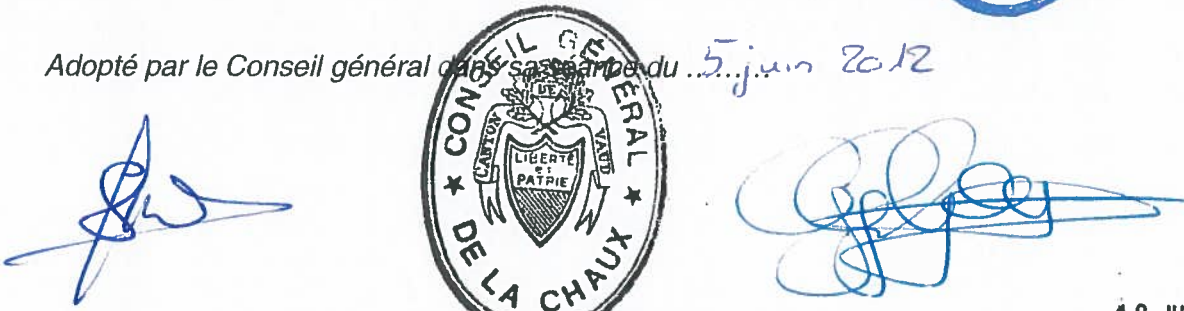 Adopté par le Conseil général dans sa séance du ......... 5 juin 2012
★ CONSEIL GÉNÉRAL ★
DE LA CHAUX
CANTON DE VAUD
LIBERTÉ
et
PATRIE